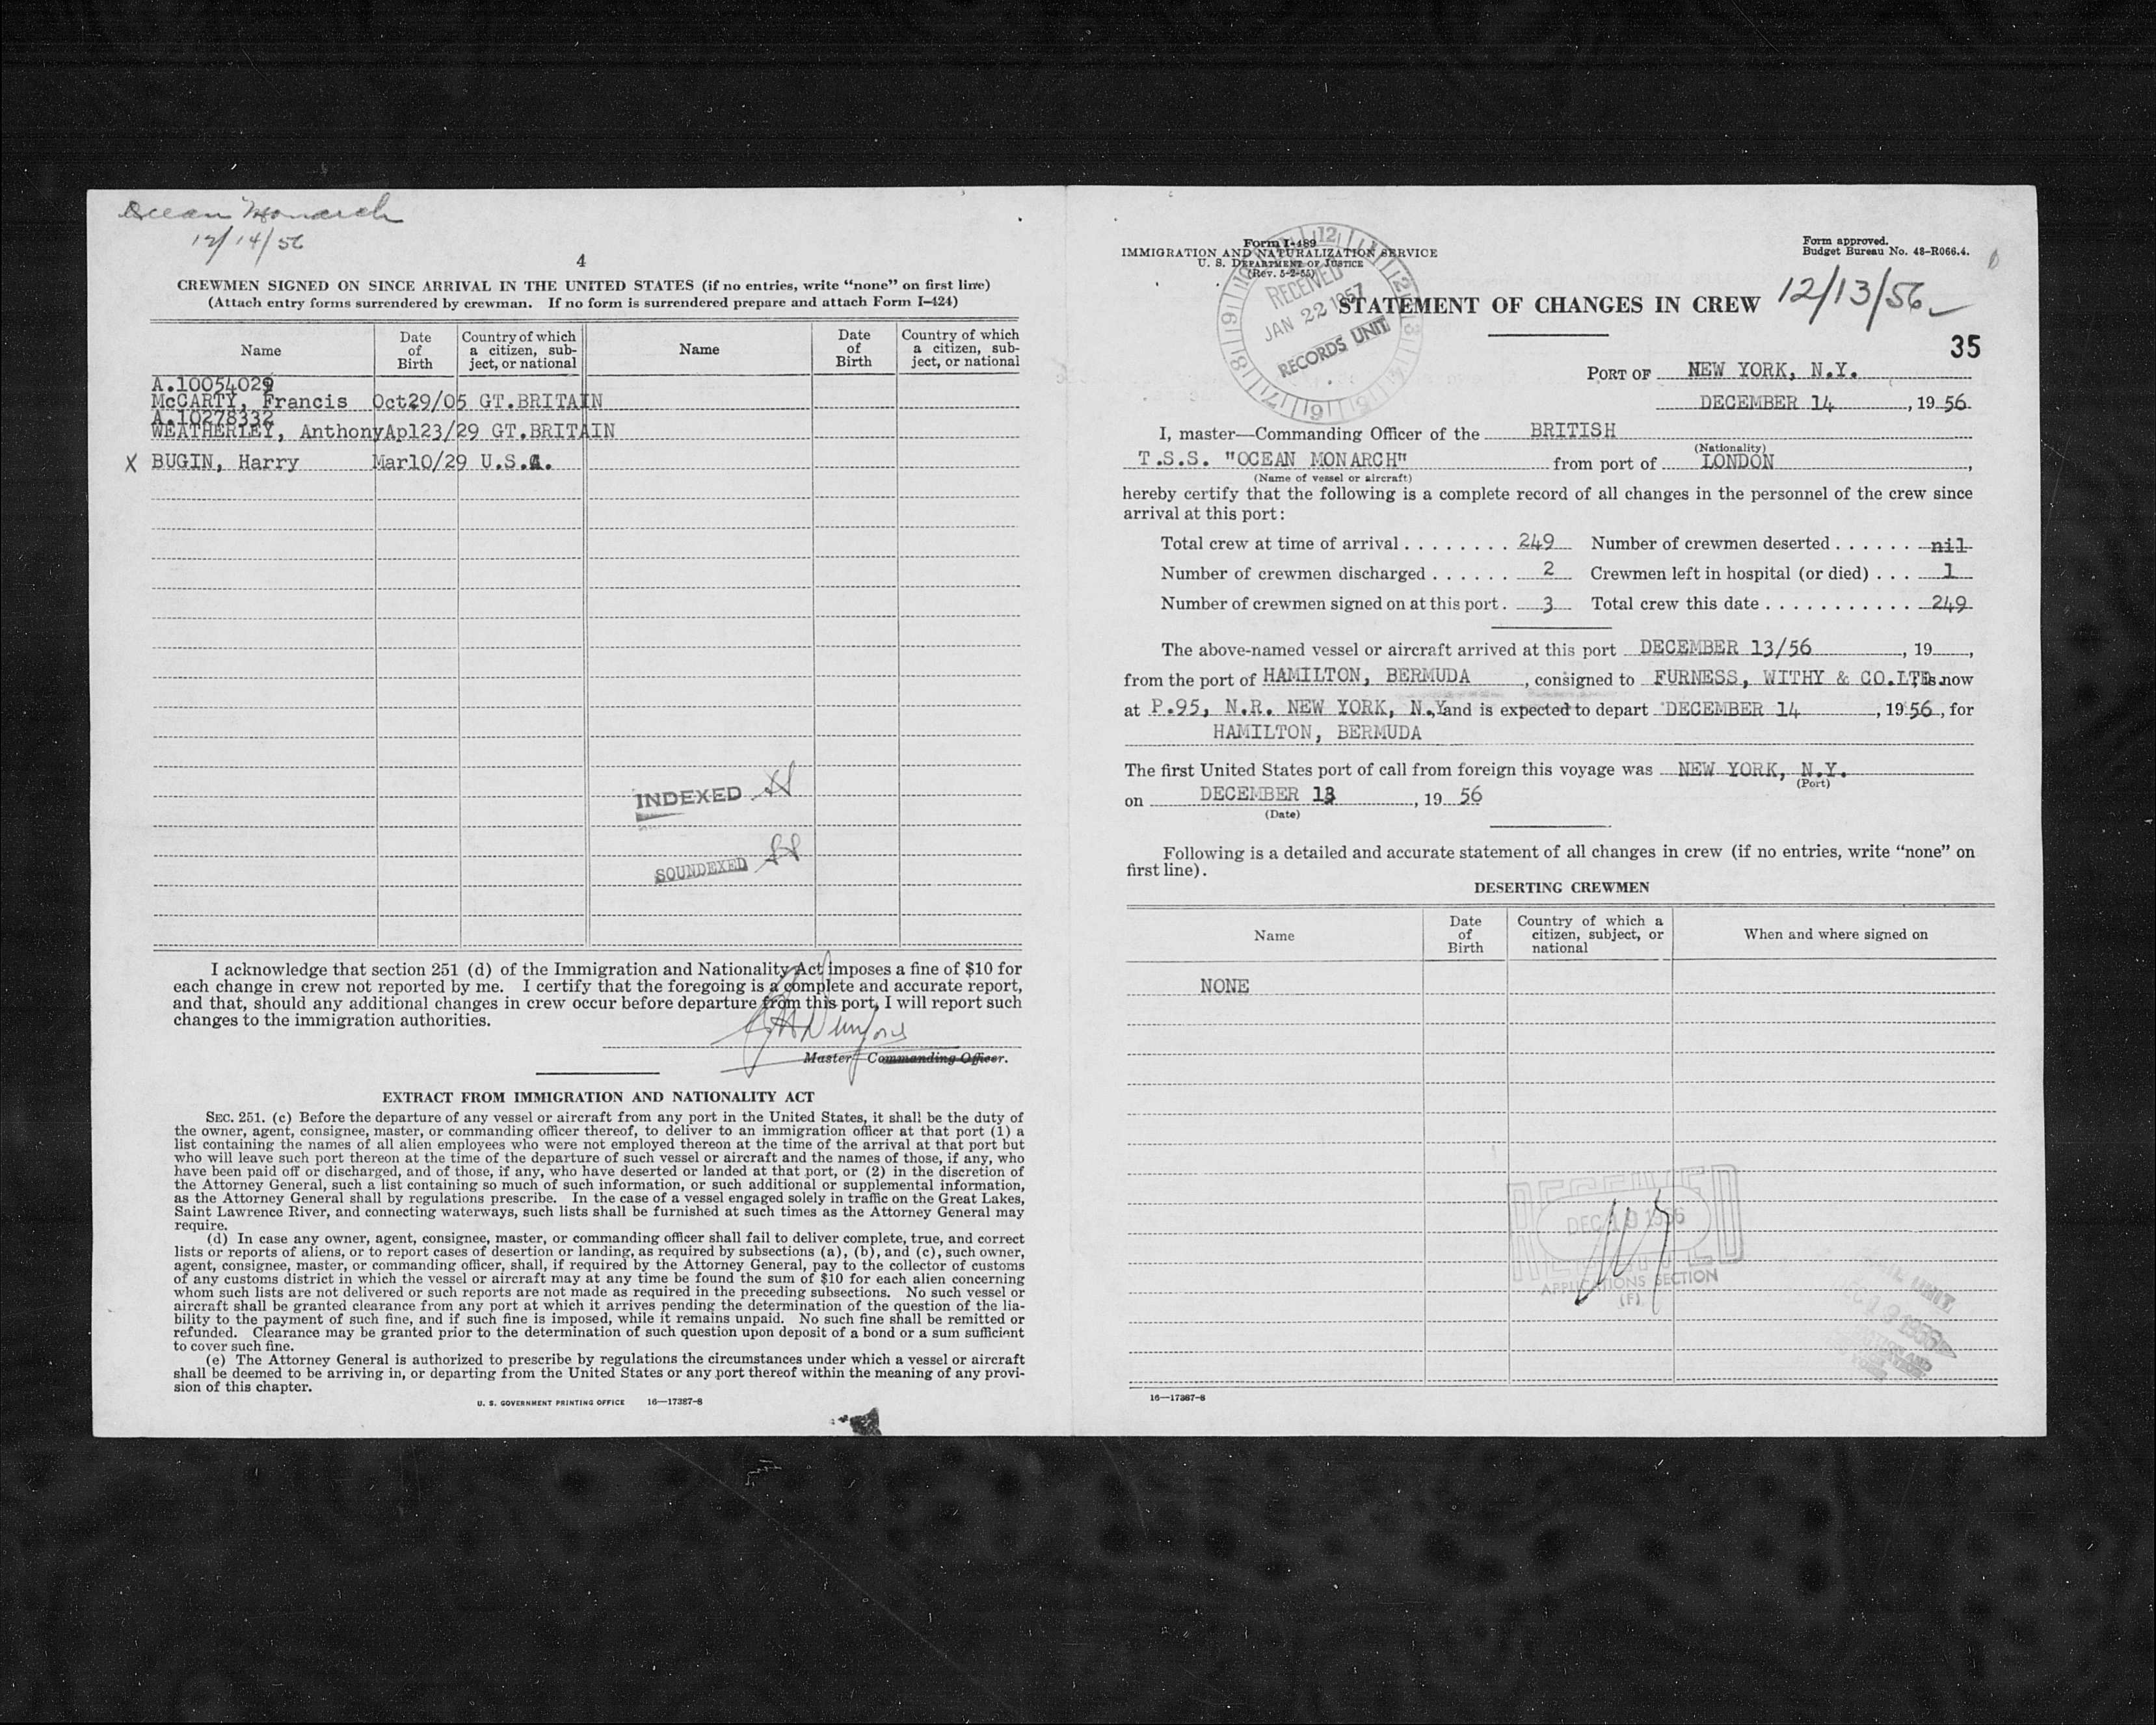 Ocean Monarch
12/14/56
4
CREWMEN SIGNED ON SINCE ARRIVAL IN THE UNITED STATES (if no entries, write “none” on first line)
(Attach entry forms surrendered by crewman. If no form is surrendered prepare and attach Form I–424)
Name Date of Birth Country of which a citizen, subject, or national Name Date of Birth Country of which a citizen, subject, or national
A.10054029
McCARTY, Francis Oct29/05 GT.BRITAIN
A.10278332
WEATHERLEY, Anthony Apl23/29 GT.BRITAIN
X BUGIN, Harry Mar10/29 U.S.A.
INDEXED
SOUNDEXED
I acknowledge that section 251 (d) of the Immigration and Nationality Act imposes a fine of $10 for
each change in crew not reported by me. I certify that the foregoing is a complete and accurate report,
and that, should any additional changes in crew occur before departure from this port, I will report such
changes to the immigration authorities.
Master Commanding Officer.
EXTRACT FROM IMMIGRATION AND NATIONALITY ACT
SEC. 251. (c) Before the departure of any vessel or aircraft from any port in the United States, it shall be the duty of
the owner, agent, consignee, master, or commanding officer thereof, to deliver to an immigration officer at that port (1) a
list containing the names of all alien employees who were not employed thereon at the time of the arrival at that port but
who will leave such port thereon at the time of the departure of such vessel or aircraft and the names of those, if any, who
have been paid off or discharged, and of those, if any, who have deserted or landed at that port, or (2) in the discretion of
the Attorney General, such a list containing so much of such information, or such additional or supplemental information,
as the Attorney General shall by regulations prescribe. In the case of a vessel engaged solely in traffic on the Great Lakes,
Saint Lawrence River, and connecting waterways, such lists shall be furnished at such times as the Attorney General may
require.
(d) In case any owner, agent, consignee, master, or commanding officer shall fail to deliver complete, true, and correct
lists or reports of aliens, or to report cases of desertion or landing, as required by subsections (a), (b), and (c), such owner,
agent, consignee, master, or commanding officer, shall, if required by the Attorney General, pay to the collector of customs
of any customs district in which the vessel or aircraft may at any time be found the sum of $10 for each alien concerning
whom such lists are not delivered or such reports are not made as required in the preceding subsections. No such vessel or
aircraft shall be granted clearance from any port at which it arrives pending the determination of the question of the lia-
bility to the payment of such fine, and if such fine is imposed, while it remains unpaid. No such fine shall be remitted or
refunded. Clearance may be granted prior to the determination of such question upon deposit of a bond or a sum sufficient
to cover such fine.
(e) The Attorney General is authorized to prescribe by regulations the circumstances under which a vessel or aircraft
shall be deemed to be arriving in, or departing from the United States or any port thereof within the meaning of any provi-
sion of this chapter.
U. S. GOVERNMENT PRINTING OFFICE 16—17387-8
Form I-489
IMMIGRATION AND NATURALIZATION SERVICE
U. S. DEPARTMENT OF JUSTICE
(Rev. 5-2-55)
Form approved.
Budget Bureau No. 43-R066.4.
RECEIVED
JAN 22 1957
RECORDS UNIT
STATEMENT OF CHANGES IN CREW 12/13/56
35
PORT OF NEW YORK, N.Y.
DECEMBER 14, 1956
I, master—Commanding Officer of the BRITISH
(Nationality)
T.S.S. "OCEAN MONARCH" from port of LONDON,
(Name of vessel or aircraft)
hereby certify that the following is a complete record of all changes in the personnel of the crew since
arrival at this port:
Total crew at time of arrival . . . . . . . . 249 Number of crewmen deserted . . . . . . nil
Number of crewmen discharged . . . . . . 2 Crewmen left in hospital (or died) . . . 1
Number of crewmen signed on at this port . 3 Total crew this date . . . . . . . . . . . . 249
The above-named vessel or aircraft arrived at this port DECEMBER 13/56, 19,
from the port of HAMILTON, BERMUDA, consigned to FURNESS, WITHY & CO.LTD. is now
at P.95, N.R. NEW YORK, N.Y. and is expected to depart DECEMBER 14, 1956, for
HAMILTON, BERMUDA
The first United States port of call from foreign this voyage was NEW YORK, N.Y.
(Port)
on DECEMBER 13, 19 56
(Date)
Following is a detailed and accurate statement of all changes in crew (if no entries, write “none” on
first line).
DESERTING CREWMEN
Name Date of Birth Country of which a citizen, subject, or national When and where signed on
NONE
RECEIVED
DEC 19 1956
APPLICATIONS SECTION
(F)
16—17387-8